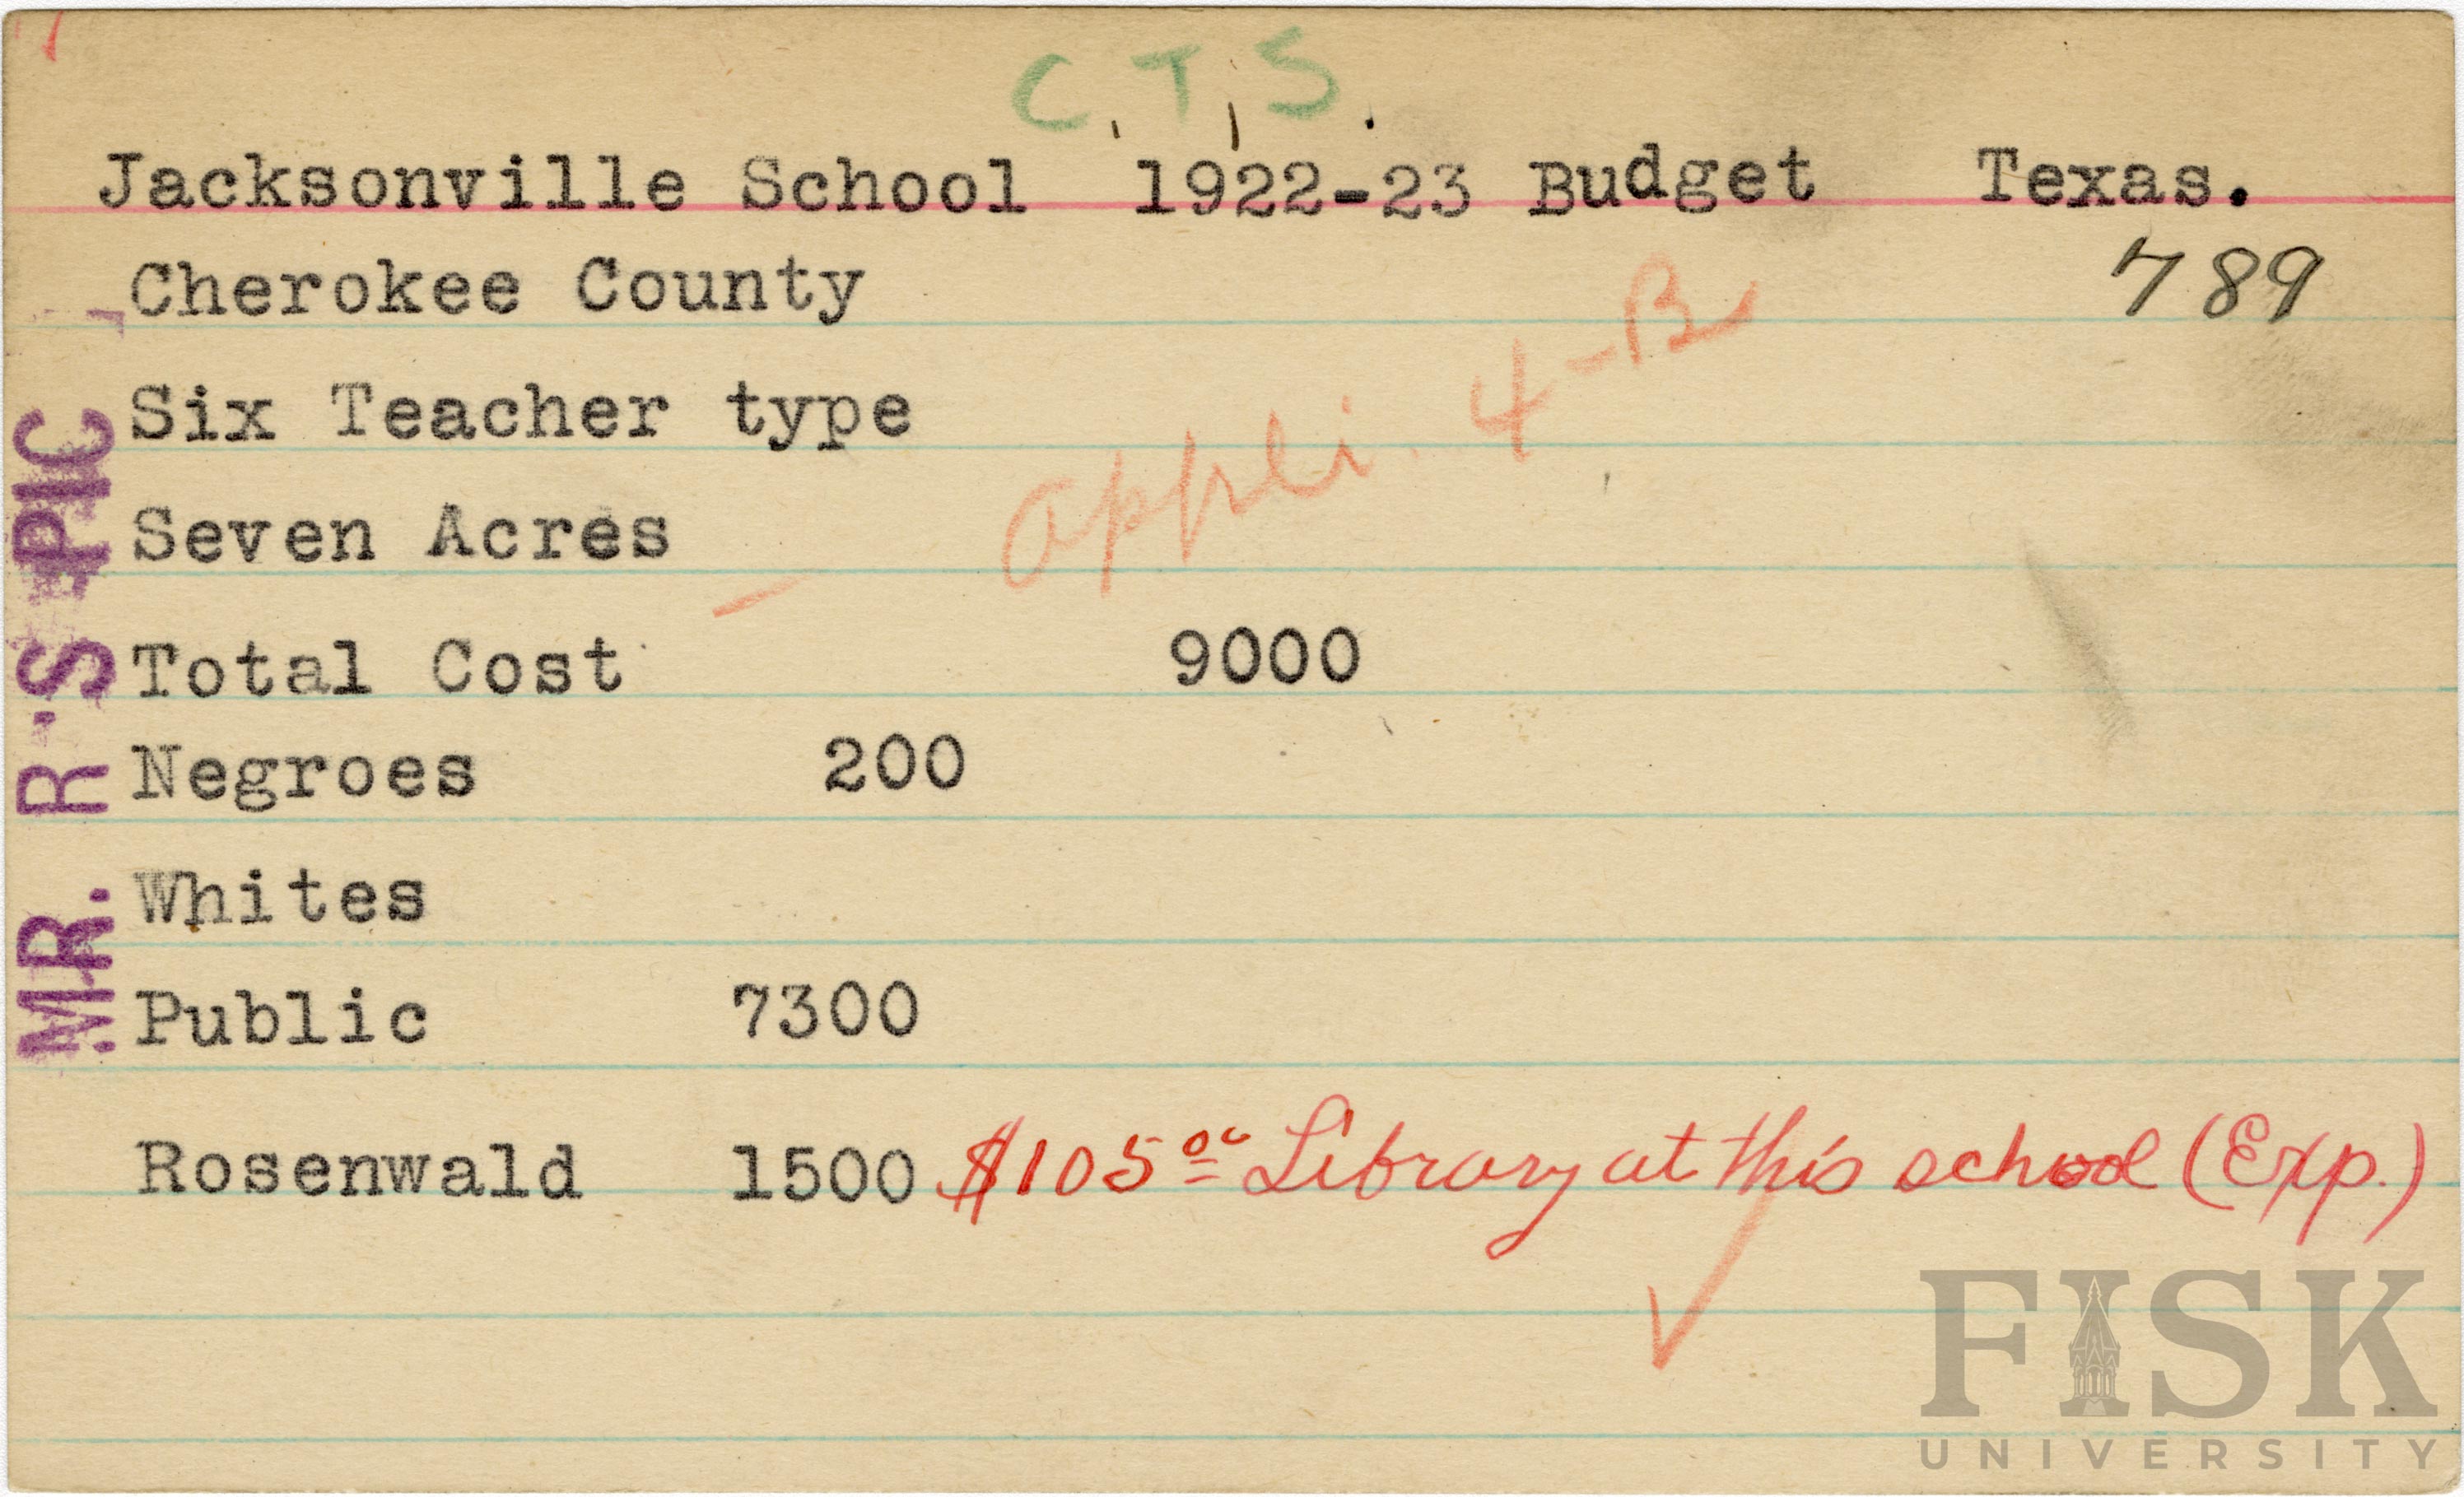 C.T.S.
Jacksonville School 1922-23 Budget Texas.
Cherokee County 789
Six Teacher type
appli. 4-B
Seven Acres
Total Cost 9000
Negroes 200
Whites
Public 7300
Rosenwald 1500 $105 00 Library at this school (Exp.)
MR. R'S PIC
FISK
UNIVERSITY